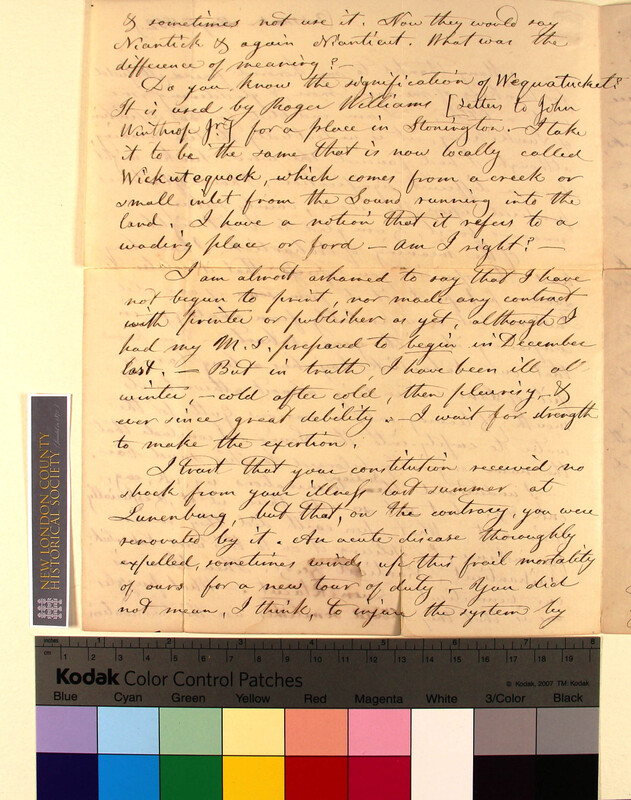 & sometimes not use it. Now they would say
Niantick & again Nianticut. What was the
difference of meaning? –
Do you know the signification of Wequatucket?
It is used by Roger Williams [Letters to John
Winthrop Jr.] for a place in Stonington. I take
it to be the same that is now locally called
Wickutequock, which comes from a creek or
small inlet from the Sound running into the
land. I have a notion that it refers to a
wading place or ford – am I right? –
I am almost ashamed to say that I have
not begun to print, nor made any contract
with printer or publisher as yet, although I
had my M.S. prepared to begin in December
last. – But in truth I have been ill all
winter, – cold after cold, then pleurisy, &
ever since great debility. – I wait for strength
to make the exertion.
I trust that your constitution received no
shock from your illness last summer at
Lunenburg, but that, on the contrary, you were
renovated by it. An acute disease thoroughly
expelled, sometimes winds up this frail mortality
of ours for a new tour of duty. You did
not mean, I think, to injure the system by
NEW LONDON COUNTY
HISTORICAL SOCIETY
inches 1 2 3 4 5 6 7 8
cm 1 2 3 4 5 6 7 8 9 10 11 12 13 14 15 16 17 18 19
Kodak Color Control Patches
© Kodak, 2007. TM: Kodak
Blue Cyan Green Yellow Red Magenta White 3/Color Black